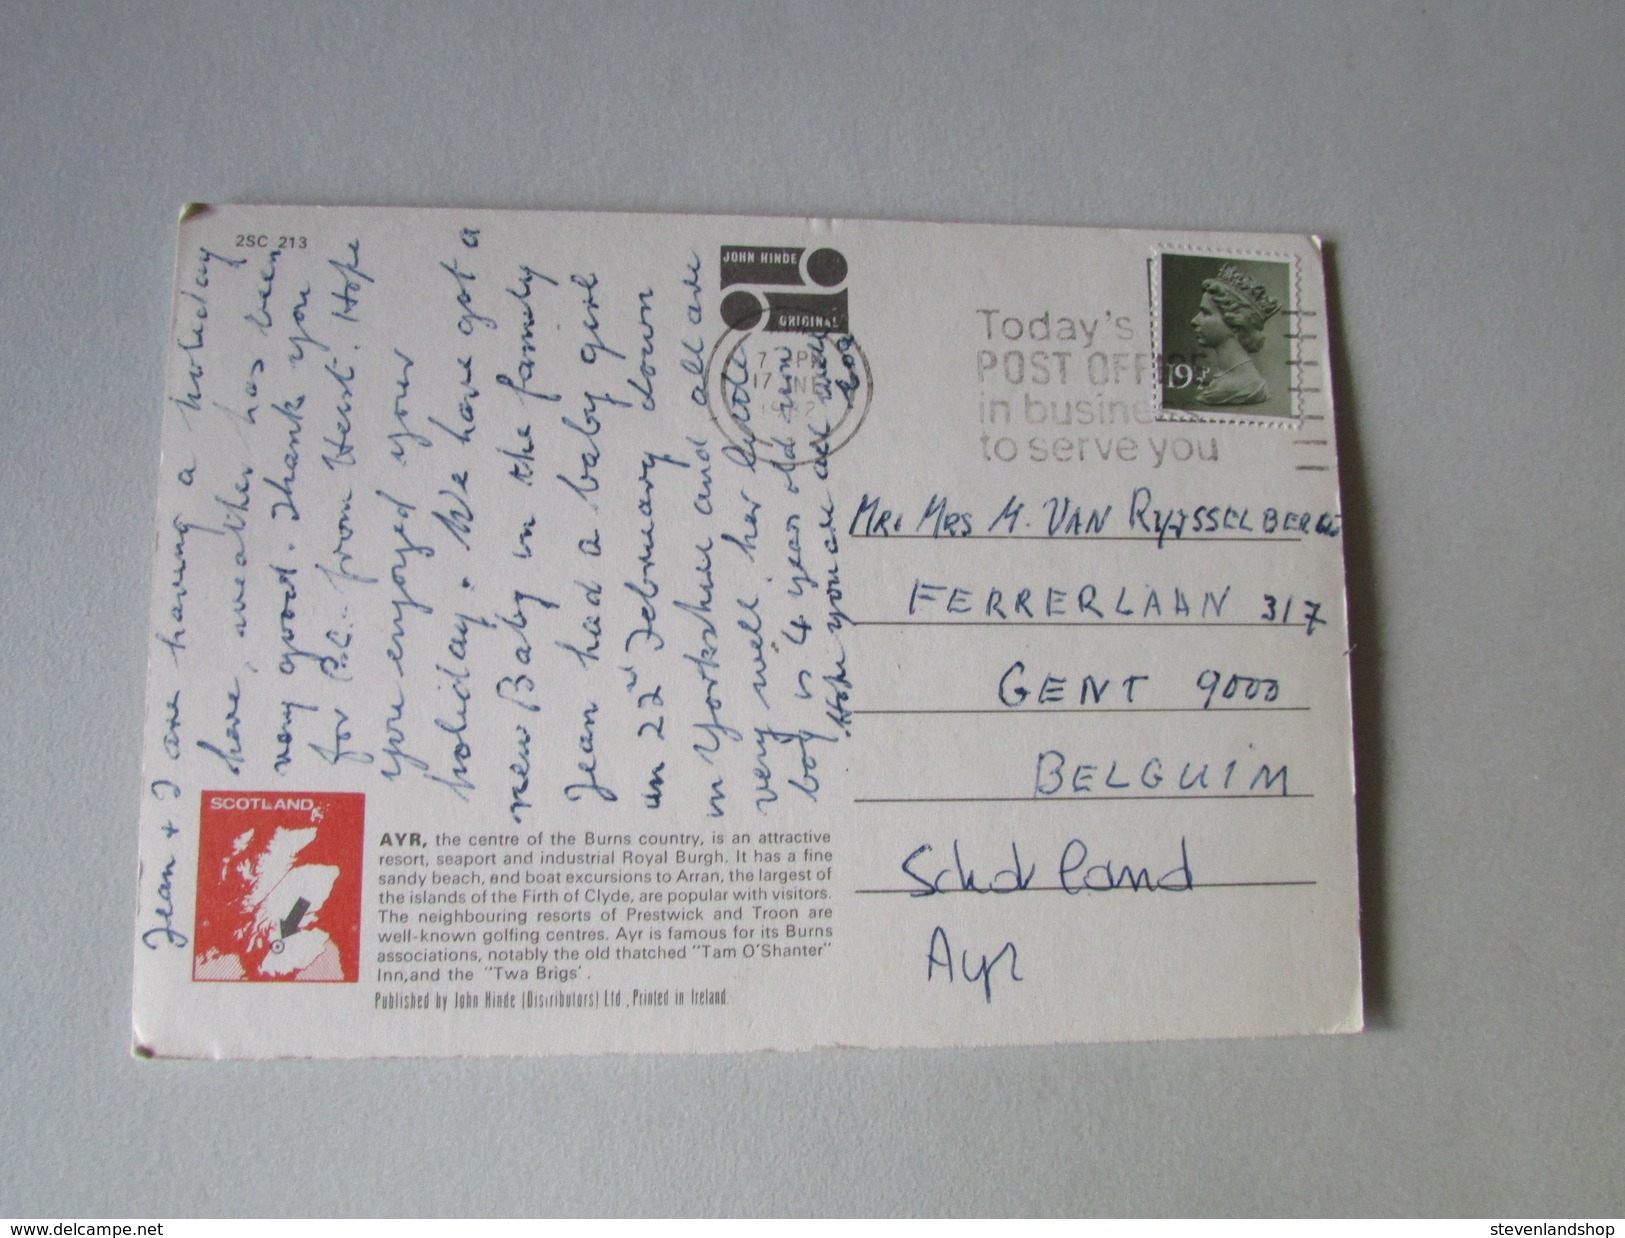 2SC 213
Jean + I are having a holiday
here, weather has been
very good. Thank you
for P.C. from Heist. Hope
you enjoyed your
holiday. We have got a
new Baby in the family
Jean had a baby girl
on 22nd February down
in Yorkshire and all are
very well. her little
boy is 4 years old now
Hope you are all well
JOHN HINDE
ORIGINAL
Today's
POST OFF
in busine
to serve you
19½P
MR. MRS M. VAN RYYSSELBERGE
FERRERLAAN 317
GENT 9000
BELGUIM
Schotland
Ayr
SCOTLAND
AYR, the centre of the Burns country, is an attractive
resort, seaport and industrial Royal Burgh. It has a fine
sandy beach, and boat excursions to Arran, the largest of
the islands of the Firth of Clyde, are popular with visitors.
The neighbouring resorts of Prestwick and Troon are
well-known golfing centres. Ayr is famous for its Burns
associations, notably the old thatched "Tam O'Shanter"
Inn, and the "Twa Brigs'.
Published by John Hinde (Distributors) Ltd., Printed in Ireland.
www.delcampe.net
stevenlandshop